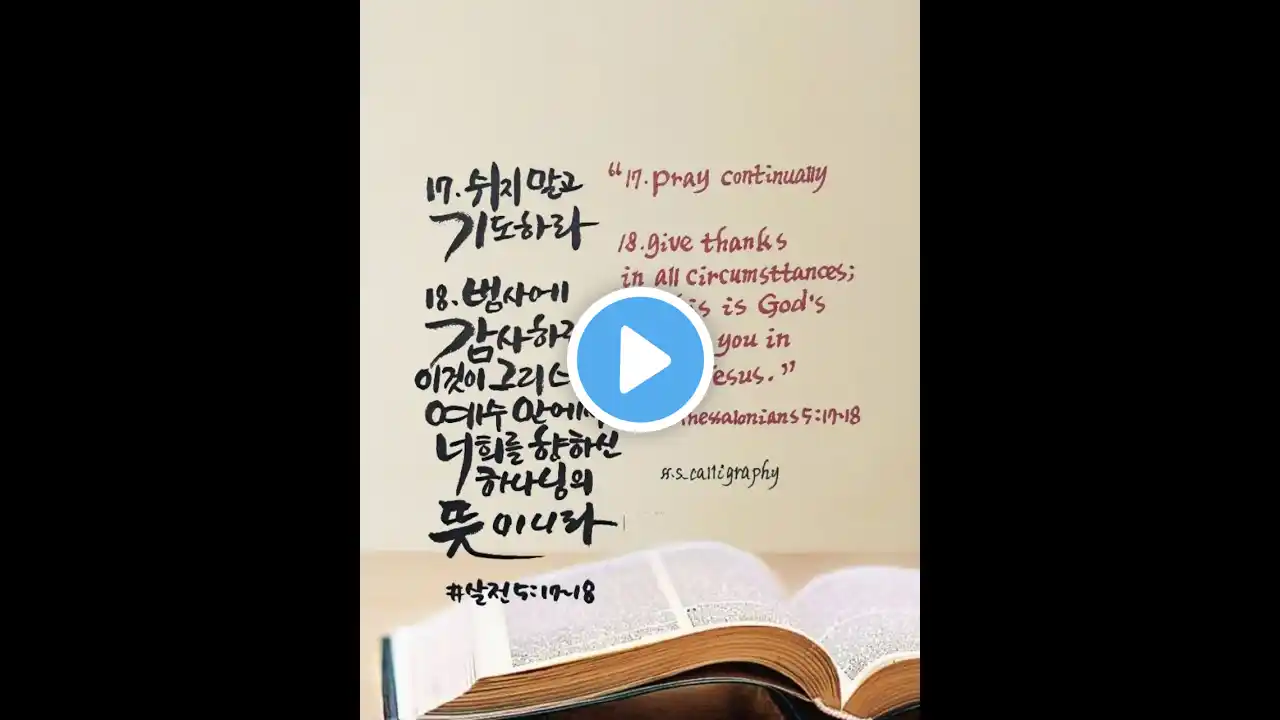 17. 쉬지 말고
기도하라
18. 범사에
감사하라
이것이 그리스
예수 안에서
너희를 향하신
하나님의
뜻이니라
#살전5:17~18
"17. pray continually
18. give thanks
in all circumsttances;
is God's
you in
esus."
hessalonians 5:17~18
s.s_calligraphy